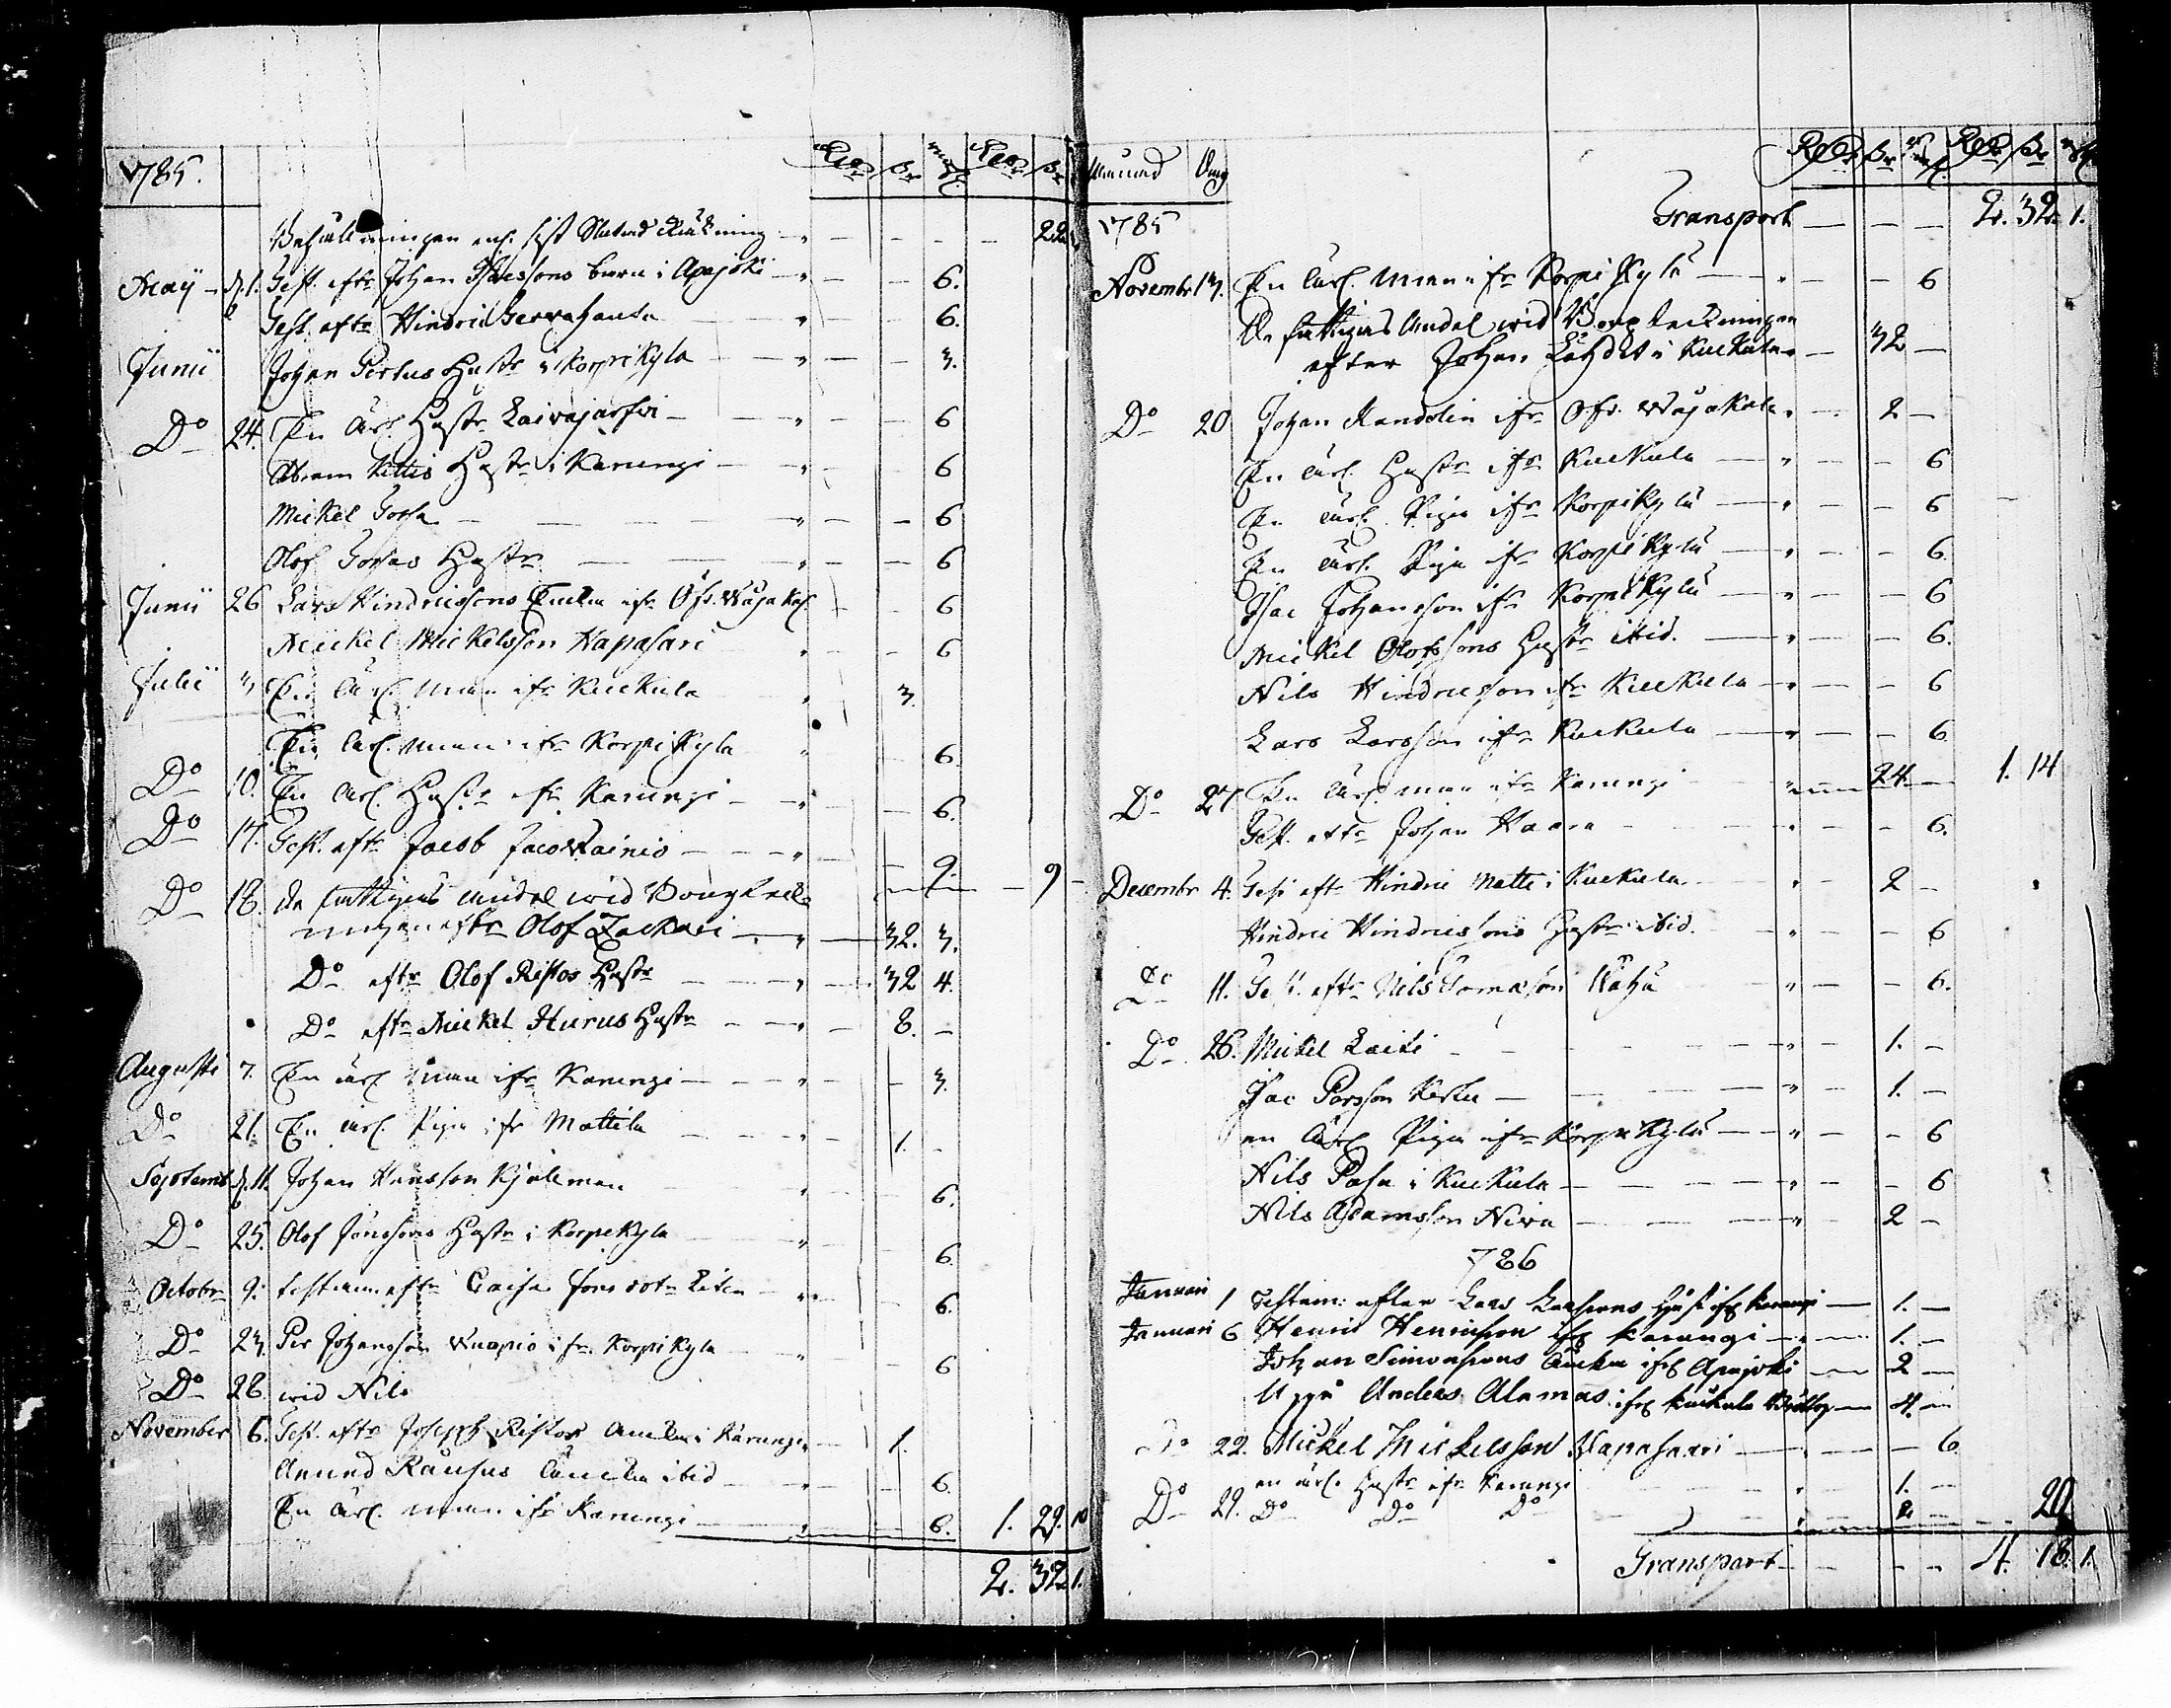 1785. Rdr ßr rst. Rdr ßr
Behållningen enl. sist Slutad Räkning " — — — 22.
Maÿ d. 1. Test. eftr Johan barn i Apajoki " — — 6.
Test. eftr Hindric " — — 6.
Junii Johan Pertus Hustr i Korpikÿla " — — 3.
Do 24. En ärl. Hustr Laivajarfwi — " — — 6
Abram Kittis Hustr i Karungi — " — — 6
Mickel — " — — 6
Olof Hustr — " — — 6
Junii 26 Lars Hindricssons Encka ifr Öfr. Wojakal — — 6
Mickel Mickelsson Wapasari " — — 6
Julii 3 En ärl. man ifr Kuckula " 3.
En ärl. man ifr Korpikyla " 6.
Do 10. En ärl. Hustr ifr Karungi — " — 6.
Do 17. Test. eftr Jacob — " — 9. — 9 —
Do 18. De fattigas andel wid Bouptek-
ningen eftr Olof Zackari — " — 32. 3.
Do eftr Olof Ristos Hustr — " — 32 4.
Do eftr Mickel Hurus Hustr — " — 8. —
Augusti 7. En ärl. man ifr Karungi — " — — 3.
Do 21. En ärl. Piga ifr Mattila — " 1. —
Septemb d. 11. Johan Hansson Kjällman " 6.
Do 25. Olof Jönssons Hustr i Korpikyla " 6.
Octobr 9. testam eftr Caisa " 6.
Do 23 Per Johansson Kuapio ifr Korpikyla " 6
Do 28. wid Nils
November 6. Test. eftr Joseph Ristos Encka i Karungi — 1.
Amund Rausus Encka ibid " — 6.
En ärl. man ifr Karungi " — 6. 1. 29. 10
2. 32. 1.
Månad Dag Rdr ßr rst. Rdr ßr rst
1785 Transport — — — 2. 32. 1.
Novembr 13. En ärl. man ifr Korpi Kylä — " — — 6
De fattigas Andel wid Bouptekningen
efter Johan i Kuckula " — 32 —
Do 20 Johan Randelin ifr Ofr. Wojakala " — 2 —
En ärl. Hustr ifr Kuckula — " — — 6
En ärl. Piga ifr Korpikylä — " — — 6
En ärl. Piga ifr Korpikylä — " — — 6.
Isac Johansson ifr Korpikylä — " — — 6
Mickel Olofssons Hustr ibid. — " — — 6.
Nils Hindricsson ifr Kuckula — " — — 6
Lars Larsson ifr Kuckula — " — — 6.
Do 27 En ärl. man ifr Karungi " — 24. — 1. 14
Test. eftr Johan Haara — " — — 6.
Decembr 4. Test eftr Hindric Matti i Kuckula " — 2 —
Hindric Hindricsons Hustr ibid. — " — — 6
Do 11. Test. eftr Nils Tomasson — " — — 6.
Do 26. Mickel Laiti — " — 1. —
Isac Persson — " — 1. —
en ärl. Piga ifr Korpikylä — " — — 6
Nils Pasa i Kuckula — " — — 6
Nils Adamsson Niwa — " — 2 —
786
Januari 1 Testam: efter Lars Larssons Hust ifr Karungi — 1. —
Januari 6 Henric Henricsson ifr Karungi — " — 1. —
Johan Simonssons Encka ifr Apajoki — 2 —
Uppå Anders Alamas ifr Kuckula Bröllop — 4. —
Do 22. Mickel Mickelsson Wapasaari — " — — 6
en ärl. Hustr ifr Karungi " — 1. —
Do 29. Do Do Do — 2 — 20
Transport — — — 4. 18. 1.